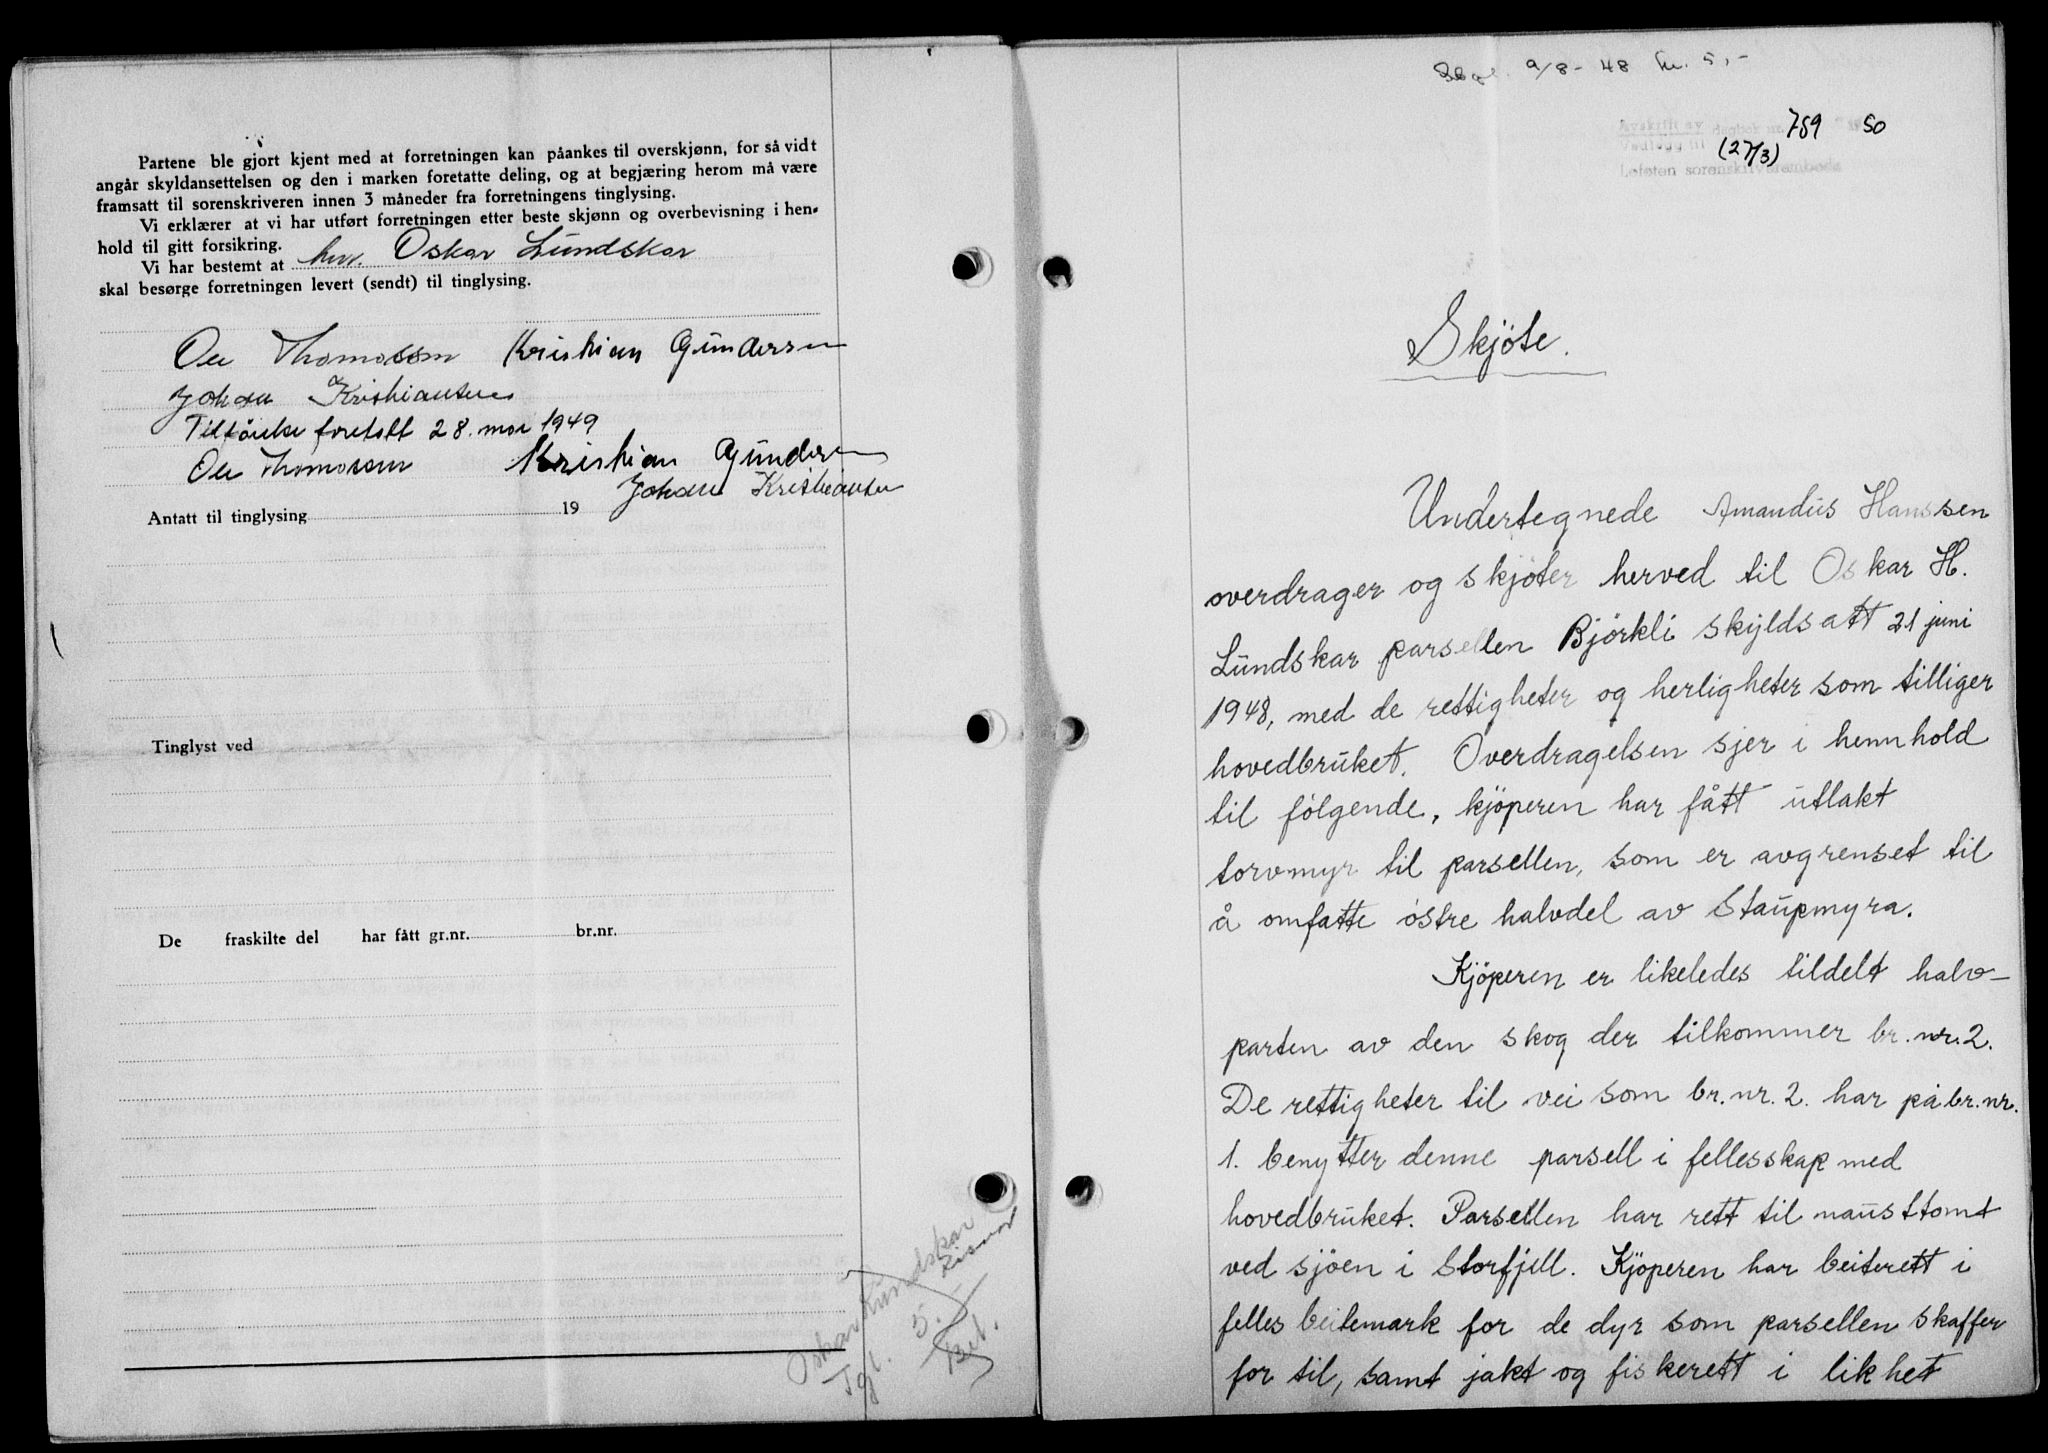 Partene ble gjort kjent med at forretningen kan påankes til overskjønn, for så vidt
angår skyldansettelsen og den i marken foretatte deling, og at begjæring herom må være
framsatt til sorenskriveren innen 3 måneder fra forretningens tinglysing.
Vi erklærer at vi har utført forretningen etter beste skjønn og overbevisning i hen-
hold til gitt forsikring.
Vi har bestemt at herr. Oskar Lundskar
skal besørge forretningen levert (sendt) til tinglysing.
Ole Thomassen Kristian Gundersen
Johan Kristiansen
foretatt 28. mai 1949
Ole Thomassen Kristian Gundersen
Johan Kristiansen
Antatt til tinglysing 19
Tinglyst ved
De fraskilte del har fått gr.nr. br.nr.
Oskar Lundskar
Tgl. 5.- Bet.
9/8-48 kr. 5,-
Avskrift av dagbok nr. 759 50
Vedlegg til (27/3)
Lofoten sorenskriverembede
Skjöte.
Undertegnede Amandus Hanssen
overdrager og skjöter herved til Oskar H.
Lundskar parsellen Björkli skyldsatt 21 juni
1948, med de rettigheter og herligheter som tilliger
hovedbruket. Overdragelsen sjer i hennhold
til fölgende, kjöperen har fått utlakt
torvmyr til parsellen, som er avgrenset til
å omfatte östre halvdel av Staupmyra.
Kjöperen er likeledes tildelt halv-
parten av den skog der tilkommer br. nr. 2.
De rettigheter til vei som br. nr. 2. har på br. nr.
1. benytter denne parsell i fellesskap med
hovedbruket. Parsellen har rett til nausttomt
ved sjöen i Storfjell. Kjöperen har beiterett i
felles beitemark for de dyr som parsellen skaffer
for til, samt jakt og fiskerett i likhet